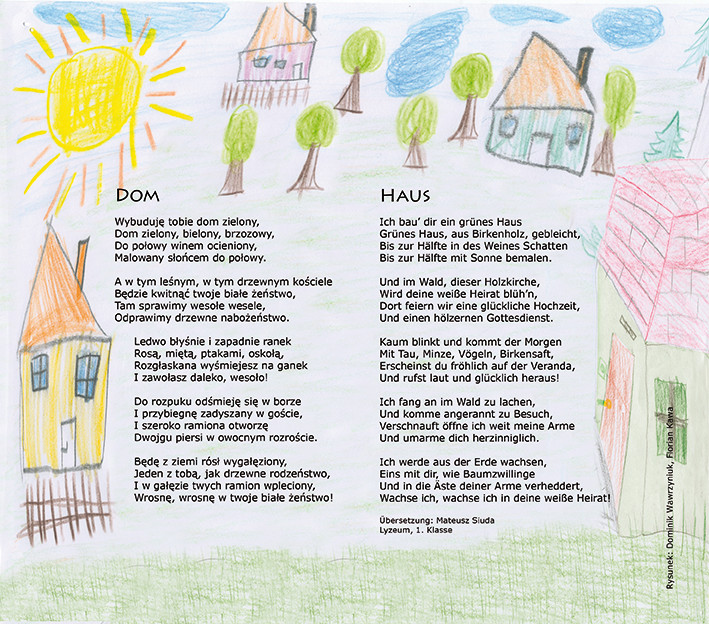 DOM
Wybuduję tobie dom zielony,
Dom zielony, bielony, brzozowy,
Do połowy winem ocieniony,
Malowany słońcem do połowy.
A w tym leśnym, w tym drzewnym kościele
Będzie kwitnąć twoje białe żeństwo,
Tam sprawimy wesołe wesele,
Odprawimy drzewne nabożeństwo.
Ledwo błyśnie i zapadnie ranek
Rosą, miętą, ptakami, oskołą,
Rozgłaskana wyśmiejesz na ganek
I zawołasz daleko, wesoło!
Do rozpuku odśmieję się w borze
I przybiegnę zadyszany w goście,
I szeroko ramiona otworzę
Dwojgu piersi w owocnym rozroście.
Będę z ziemi rósł wygałęziony,
Jeden z tobą, jak drzewne rodzeństwo,
I w gałęzie twych ramion wpleciony,
Wrosnę, wrosnę w twoje białe żeństwo!
HAUS
Ich bau’ dir ein grünes Haus
Grünes Haus, aus Birkenholz, gebleicht,
Bis zur Hälfte in des Weines Schatten
Bis zur Hälfte mit Sonne bemalen.
Und im Wald, dieser Holzkirche,
Wird deine weiße Heirat blüh’n,
Dort feiern wir eine glückliche Hochzeit,
Und einen hölzernen Gottesdienst.
Kaum blinkt und kommt der Morgen
Mit Tau, Minze, Vögeln, Birkensaft,
Erscheinst du fröhlich auf der Veranda,
Und rufst laut und glücklich heraus!
Ich fang an im Wald zu lachen,
Und komme angerannt zu Besuch,
Verschnauft öffne ich weit meine Arme
Und umarme dich herzinniglich.
Ich werde aus der Erde wachsen,
Eins mit dir, wie Baumzwillinge
Und in die Äste deiner Arme verheddert,
Wachse ich, wachse ich in deine weiße Heirat!
Übersetzung: Mateusz Siuda
Lyzeum, 1. Klasse
Rysunek: Dominik Wawrzyniuk, Florian Kawa